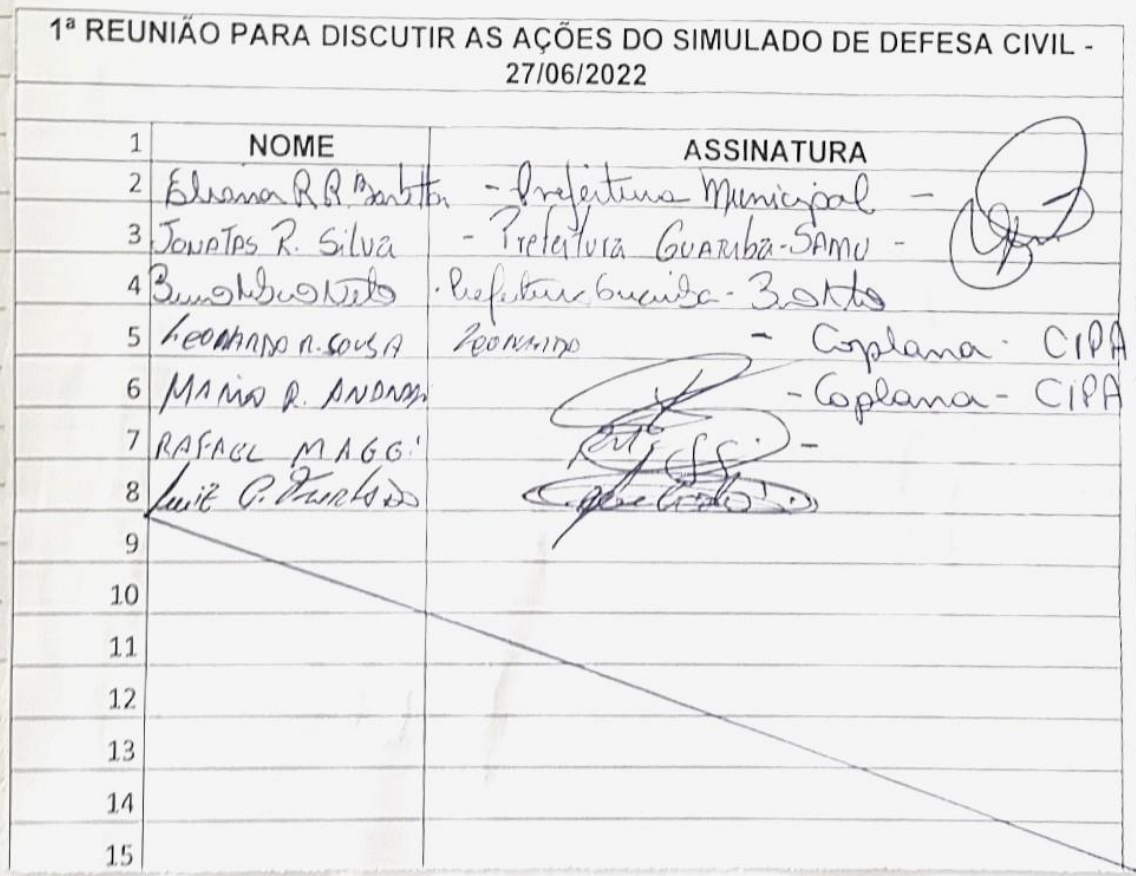 1ª REUNIÃO PARA DISCUTIR AS AÇÕES DO SIMULADO DE DEFESA CIVIL -
27/06/2022
1 NOME ASSINATURA
2 Eliana R R - Prefeitura Municipal -
3 JONATAS R. SILVA - Prefeitura GUARIBA-SAMU -
4 Neto Prefeitura Guariba -
5 LEONARDO R. SOUSA LEONARDO - Coplana - CIPA
6 MARIO R. - Coplana - CIPA
7 RAFAEL MAGGI -
8 Luiz C.
9
10
11
12
13
14
15